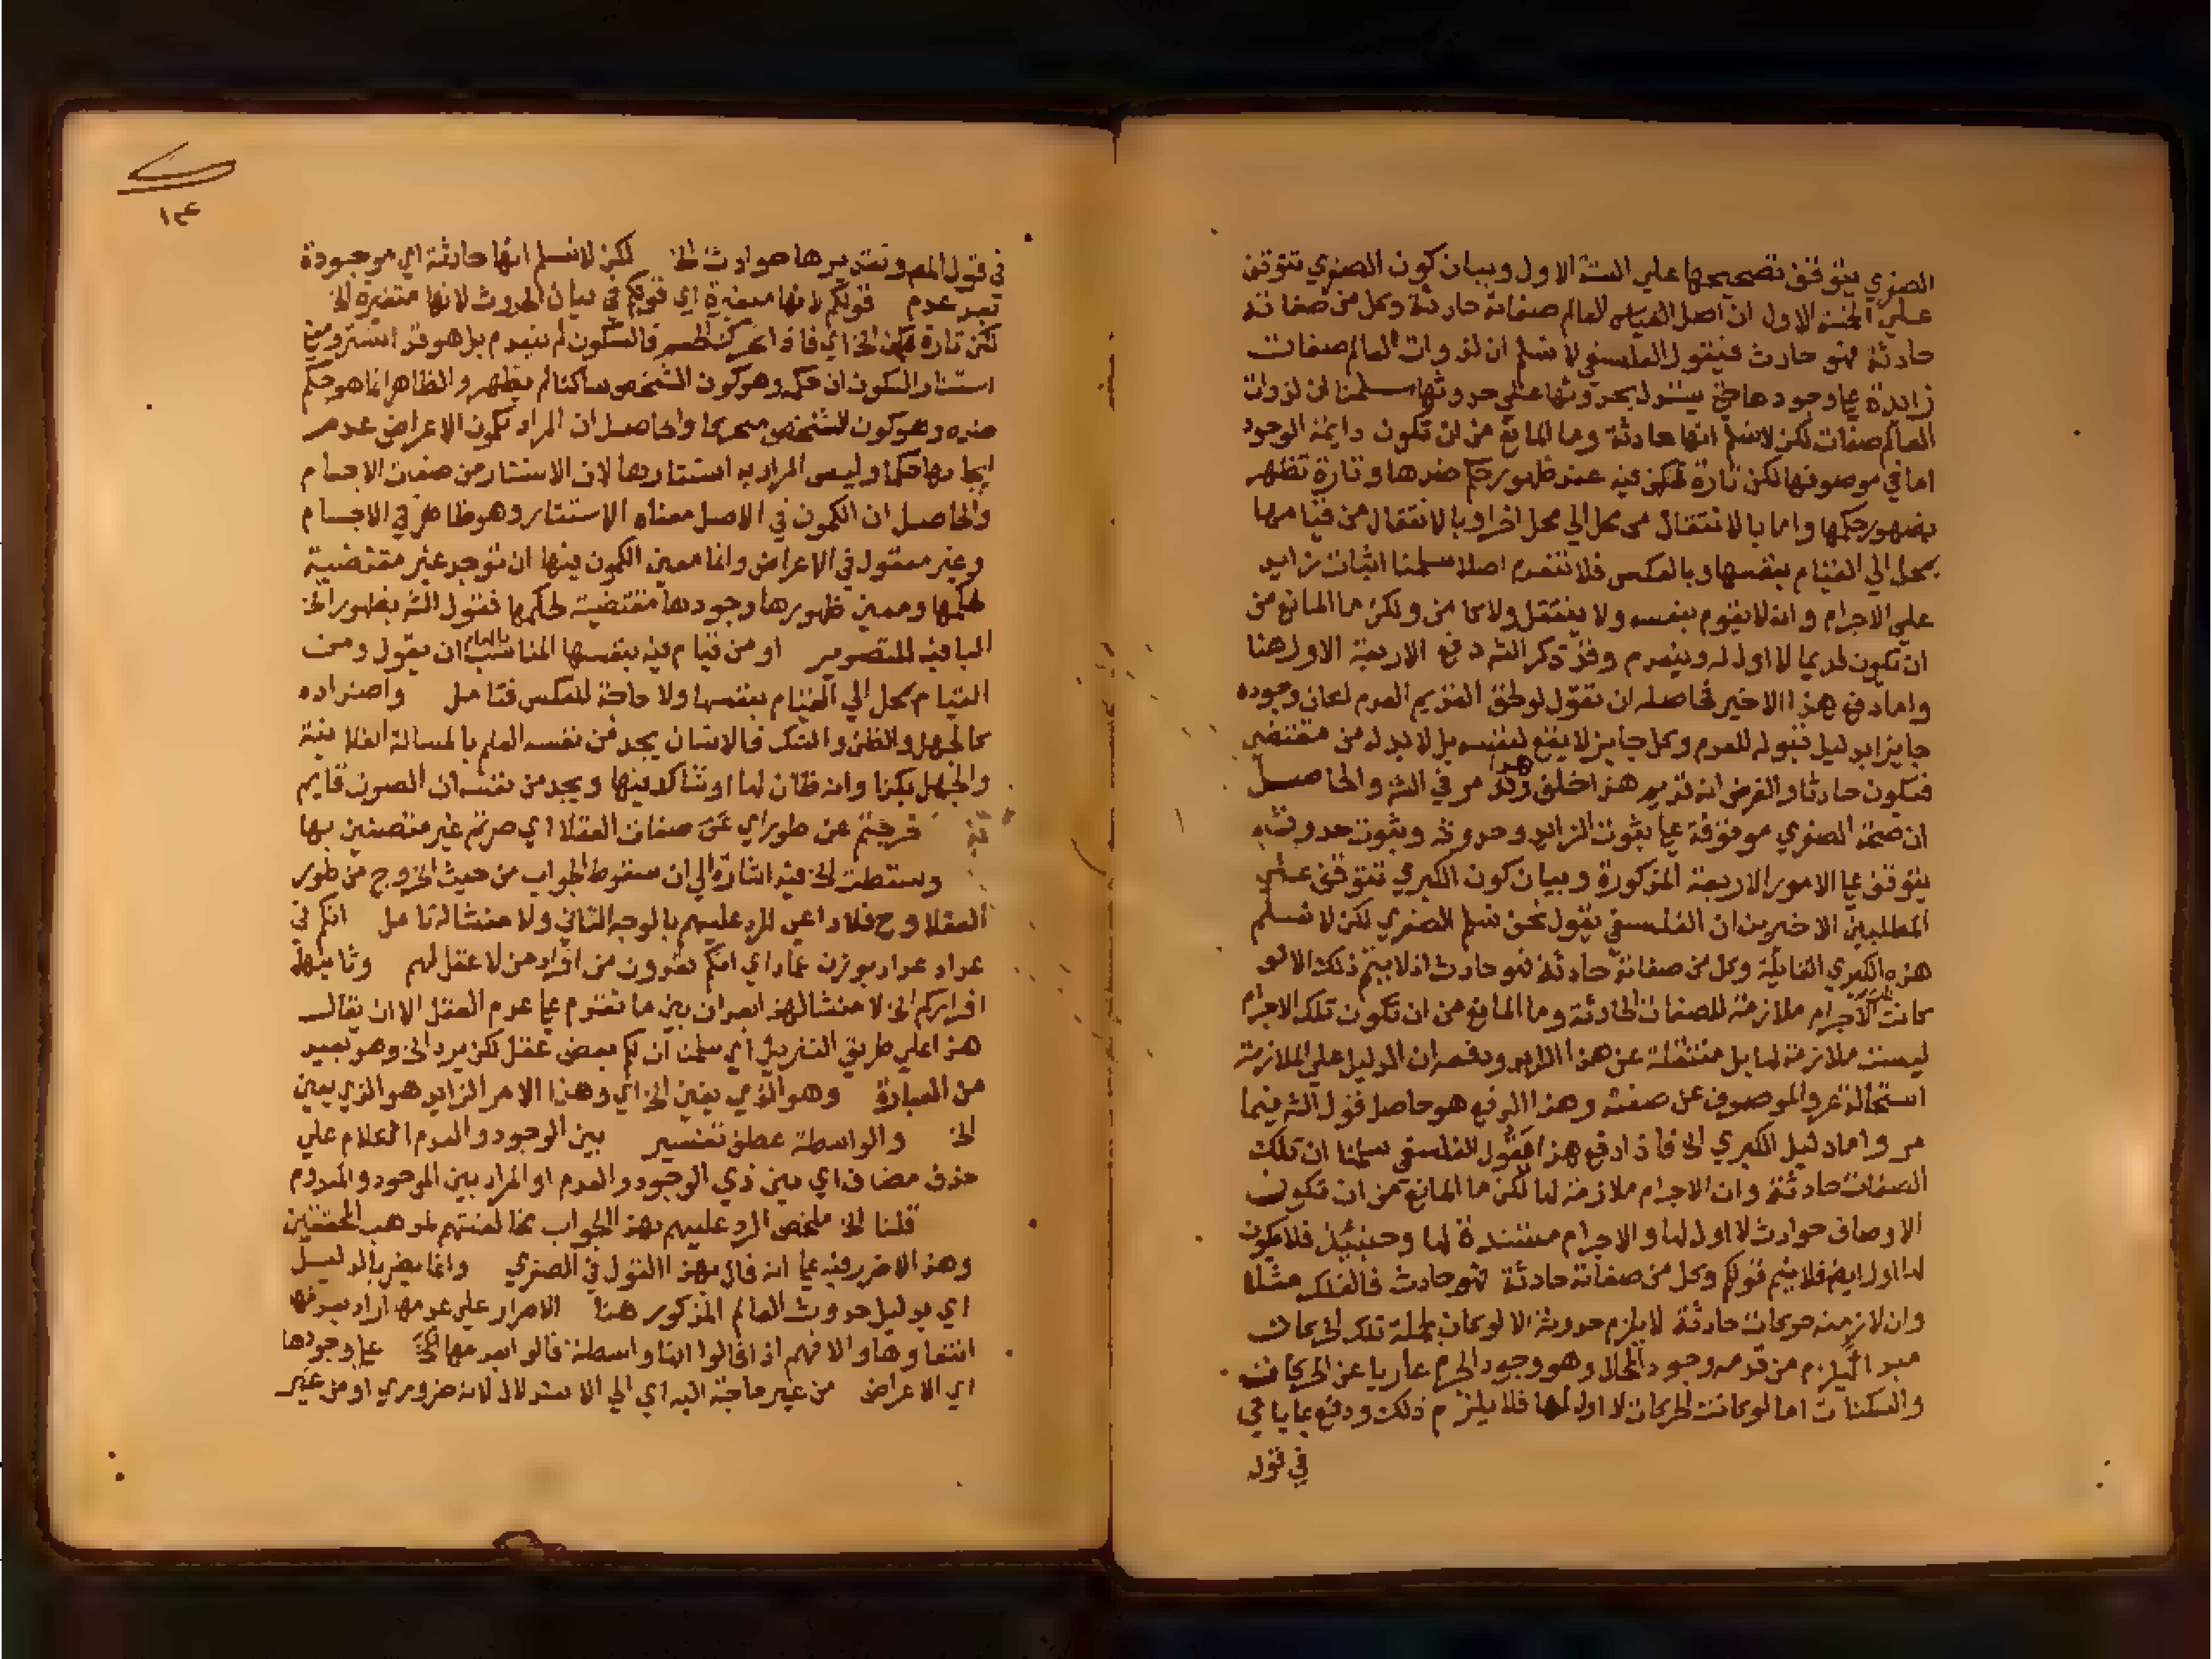 الصغري يتوقف تصحيحها علي الستة الاول وبيان كون الصغري تتوقف
علي الستة الاول ان اصل القياس العالم صفاته حادثة وكل من صفاته
حادثة فهو حادث فيقول الفلسفي لا نسلم ان لذوات العالم صفات
زايدة علي وجودها حتي يستدل بحدوثها علي حدوثها سلمنا ان لذوات
العالم صفات لكن لا نسلم انها حادثة وما المانع من ان تكون دايمة الوجود
اما في موصوفها لكن تارة تكمن فيه عند ظهور حكم ضدها وتارة تظهر
بظهور حكمها واما بالانتقال من محل الي محل اخر او بالانتقال من قيامها
بمحل الي القيام بنفسها وبالعكس فلا تنعدم اصلا سلمنا اثبات زايد
علي الاجرام وانه لا يقوم بنفسه ولا ينتقل ولا كامن ولكن ما المانع من
ان تكون قديما لا اول له وينعدم وقد ذكر الشه دفع الاربعة الاول هنا
واما دفع هذا الاخير فحاصله ان تقول لو لحق القديم العدم لكان وجوده
جايزا بدليل قبوله للعدم وكل جايز لا يقع لنفسه بل لا بد له من مقتضي
فيكون حادثا والفرض انه قديم هذا خلف وقد مر في الشه والحاصل
ان صحة الصغري موقوفة علي ثبوت الزايد وحدوثه وثبوت حدوثه
يتوقف علي الامور الاربعة المذكورة وبيان كون الكبري تتوقف علي
المطلبين الاخيرين ان الفلسفي يقول نحن نسلم الصغري لكن لا نسلم
هذه الكبري القايلة وكل من صفاته حادثة فهو حادث اذ لا يتم ذلك الا لو
كانت الاجرام ملازمة للصفات الحادثة وما المانع من ان تكون تلك الاجرام
ليست ملازمة لها بل منتقلة عن هذا الزايد ودفعه ان الدليل علي الملازمة
استحالة عرو الموصوف عن صفته وهذا الدفع هو حاصل قول الشه فيما
مر واما دليل الكبري الخ فاذا دفع هذا فيقول الفلسفي سلمنا ان تلك
الصفات حادثة وان الاجرام ملازمة لها لكن ما المانع من ان تكون
الاوصاف حوادث لا اول لها والاجرام مستندة لها وحينئذ فلا يكون
لها اول ايض فلا يتم قولكم وكل من صفاته حادثة فهو حادث فالفلك مثلا
وان لازمته حركات حادثة لا يلزم حدوثه الا لو كان لجملة تلك الحركات
مبدا فيلزم من قدمه وجود المحال وهو وجود الجرم عاريا عن الحركات
والسكنات اما لو كانت الحركات لا اول لها فلا يلزم ذلك ودفع بما ياتي
في قول
١٣
في قول المصر وتقديرها حوادث الخ لكن لا نسلم انها حادثة اي موجودة
بعد عدم قولكم لانها متغيرة اي قولكم في بيان الحدوث لانها متغيرة الخ
لكن تارة تكمن الخ اي فاذا تحرك الجسم فالسكون لم ينعدم بل هو قد استتر ومعني
استتار السكون ان حكمه وهو كون الشخص ساكنا لم يظهر والظاهر انما هو حكم
ضده وهو كون الشخص متحركا والحاصل ان المراد بكون الاعراض عدم
ايجابها حكما وليس المراد به استتارها لان الاستتار من صفات الاجسام
والحاصل ان الكمون في الاصل معناه الاستتار وهو ظاهر في الاجسام
وغير معقول في الاعراض وانما معني الكمون فيها ان توجد غير مقتضية
لحكمها ومعني ظهورها وجودها مقتضية لحكمها فقول الشه بظهور الخ
البا فيه للتصوير او من قيام فيه بنفسها المناسب بالعام ان يقول ومن
القيام بمحل الي القيام بنفسها ولا حاجة للعكس فتامل واضداده
كالجهل والظن والشك فالانسان يجد من نفسه العلم بالمسالة الفلانية
والجهل بكذا وانه ظان لها او شاك فيها ويجد من نفسه ان الصوت قايم
به خرجتم عن طوراي عن صفات العقلا اي صرتم غير متصفين بها
وسقطت الخ فيه اشارة الي ان سقوط الجواب من حيث الخروج من طور
العقلا وح فلا داعي للرد عليهم بالوجه الثاني ولا منشا له تامل انكم في
عداد عداد بوزن عماد اي انكم تعدون من افراد من لا عقل لهم وثانيها
اقراركم الخ لا منشا لهذ ابعد ان بين ما تقدم علي عدم العقل الا ان يقال
هذا علي طريق التنزيل اي سلمنا ان لكم بعض عقل لكن يرد الخ وهو بعيد
من العبارة وهو الذي يعني الخ اي وهذا الامر الزايد هو الذي يعني
الخ والواسطة عطف تفسير بين الوجود والعدم الكلام علي
حذف مضاف اي بين ذي الوجود والعدم او المراد بين الموجود والمعدوم
قلنا الخ ملخص الرد عليهم بهذ الجواب مخالفتهم لمذهب المحققين
وهذ لا ضرر فيه علي انه قال بهذ القول في الصغري وانما يضر بالدليل
اي بدليل حدوث العالم المذكور هنا الاصرار علي عدمها اراد بعدمها
انتفاوها والا فهم اذا قالوا انها واسطة قالوا بعدمها الخ علي وجودها
اي الاعراض من غير حاجة اليه اي الي الاستدلال لانه ضروري او من غير